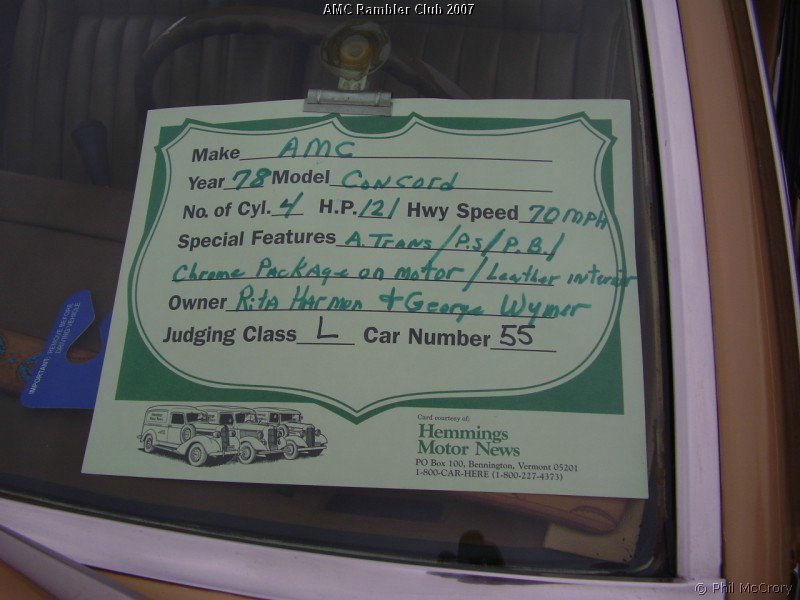 AMC Rambler Club 2007
Make AMC
Year 78 Model Concord
No. of Cyl. 4 H.P. 121 Hwy Speed 70 MPH
Special Features A. Trans / P.S / P.B. /
Chrome Package on motor / Leather interior
Owner Rita Harmon + George Wymer
Judging Class L Car Number 55
IMPORTANT: REMOVE BEFORE
DRIVING VEHICLE
Card courtesy of:
Hemmings
Motor News
PO Box 100, Bennington, Vermont 05201
1-800-CAR-HERE (1-800-227-4373)
© Phil McCrory